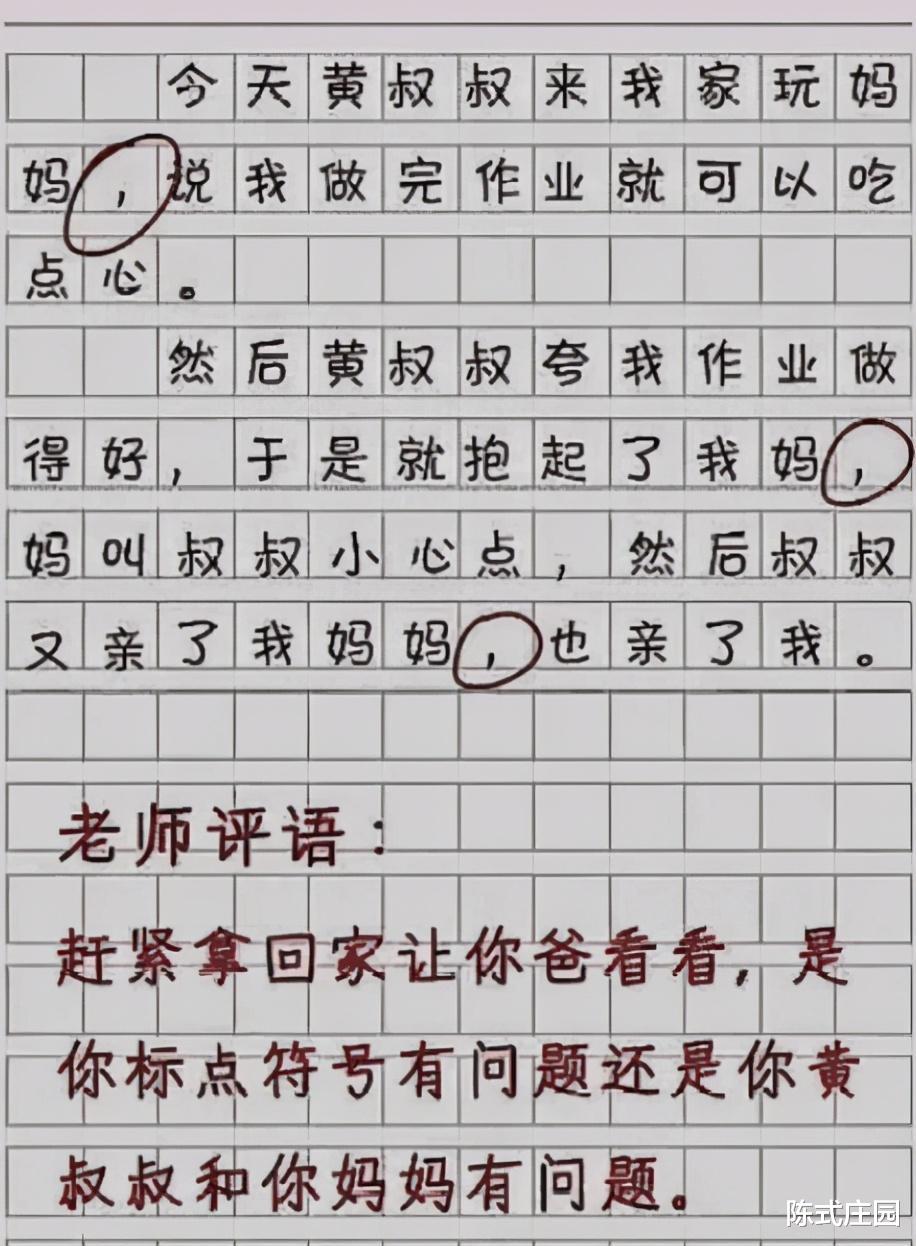 今天黄叔叔来我家玩妈
妈，说我做完作业就可以吃
点心。
然后黄叔叔夸我作业做
得好，于是就抱起了我妈，
妈叫叔叔小心点，然后叔叔
又亲了我妈妈，也亲了我。
老师评语：
赶紧拿回家让你爸看看，是
你标点符号有问题还是你黄
叔叔和你妈妈有问题。
陈式庄园